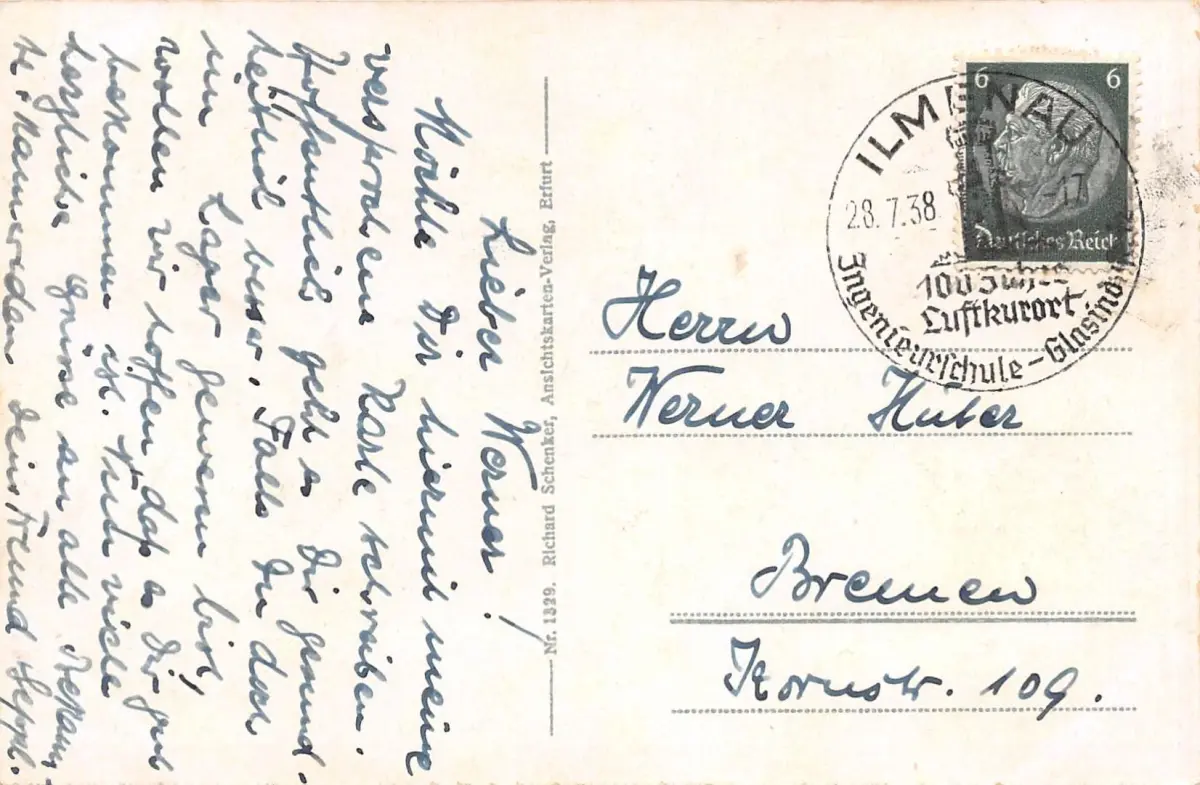 Lieber Werner!
Möchte Dir hiermit meine
versprochene Karte schreiben.
Hoffentlich geht es Dir gesund-
heitlich besser. Falls Du doch
im Lager gewesen bist,
wollen wir hoffen, daß es Dir gut
bekommen ist. Nun viele
herzliche Grüsse an alle Bekann-
te u. Kameraden dein Freund Seppl.
Nr. 1329. Richard Schenker, Ansichtskarten-Verlag, Erfurt
6 6
Deutsches Reich
ILMENAU
28.7.38 -17
100 Jahre
Luftkurort
Ingenieurschule – Glasindustrie
Herrn
Werner Huber
Bremen
Kornstr. 109.